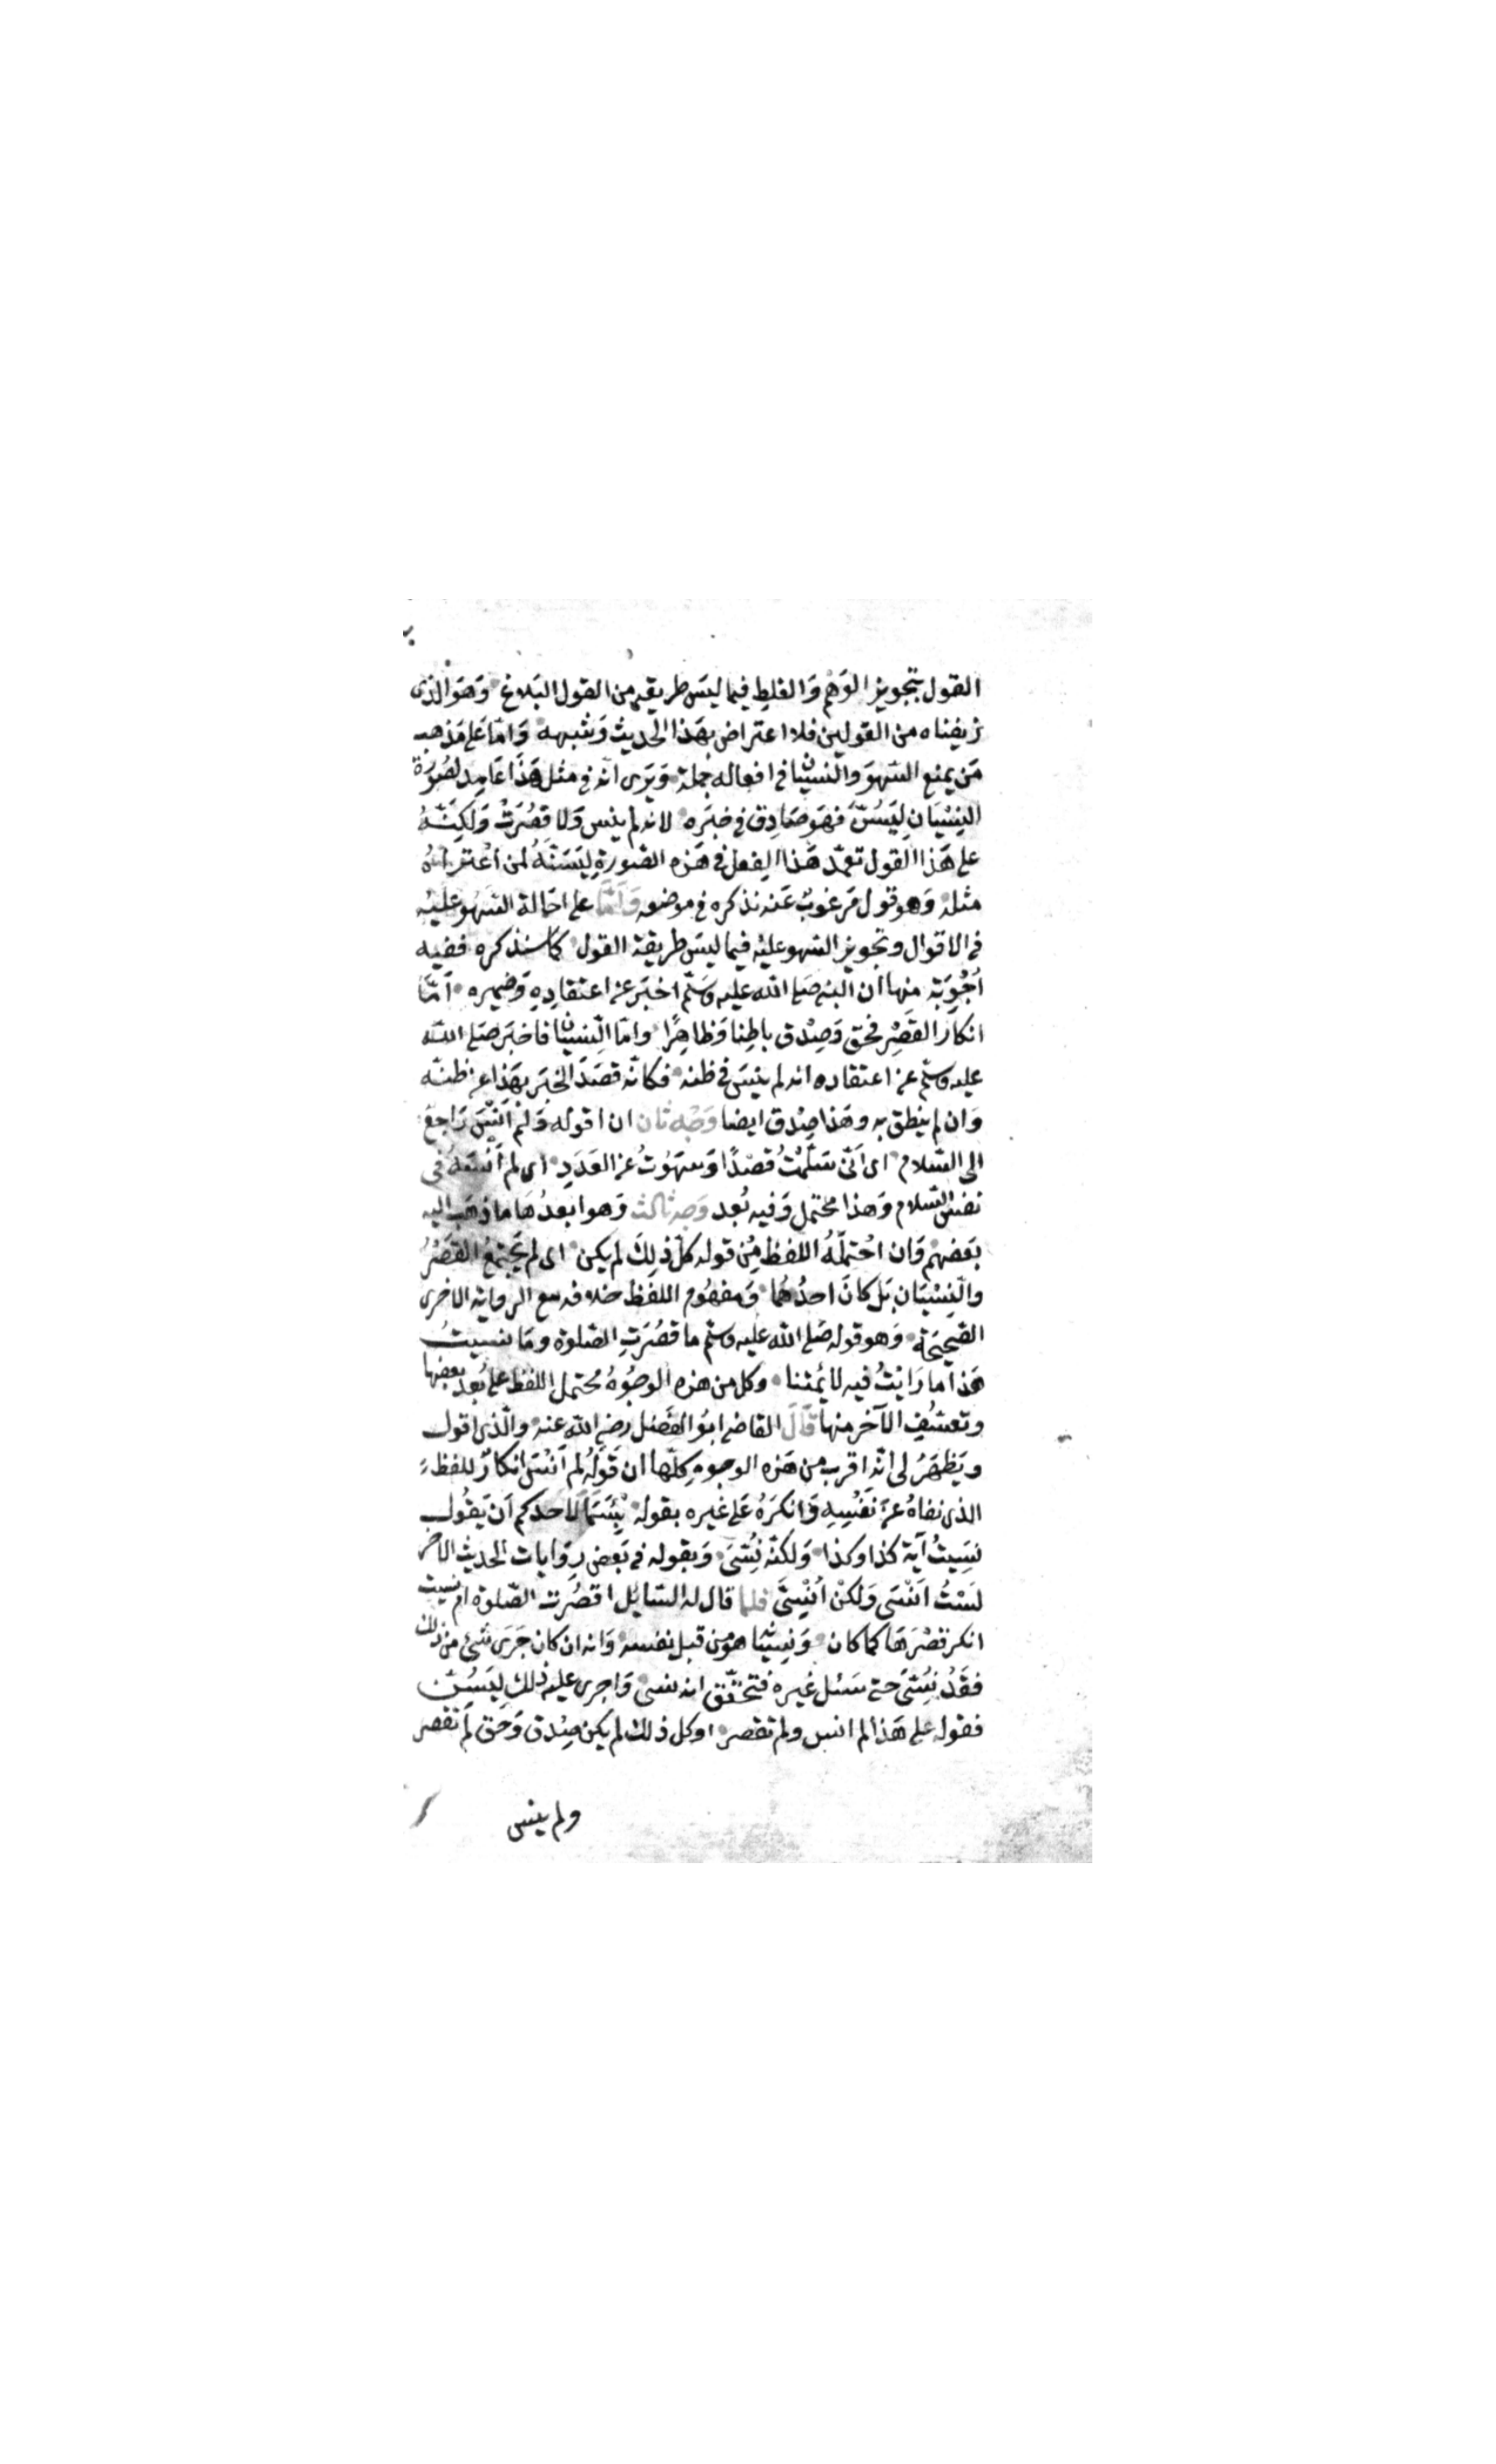 القول بتجويز الوَهْمِ وَالغلطِ فيما ليسَ طريقه من القول البَلاغ وَهوَ الذى
زيفناه من القولين فلا اعتراض بهَذا الحديث وَشبهه وَامّا عَلى مَذهب
مَن يمنع السّهوَ والنسيان فى افعاله جُملة وَيَرى انّه فى مثل هَذَا عَامِد لصُورَة
النِسْيَانِ لِيَسُنّ فهَو صَادِق فى خبَره لانه لم ينس وَلا قصُرَتْ وَلكِنّهُ
على هَذا القول تعمّد هَذا الفِعل فى هَذه الصّورة لِيَسَنّهُ لمن اعْتراهُ
مثله وَهو قول مَرغوبٌ عَنه نذكره فى موضعه وَامَّا على احَالة السّهْو عليْه
فى الاقوال وتجويز السّهو عليْه فيما ليسَ طريقة القول كما سنذكره ففيه
اَجْوِبَة منها ان النبى صَلى الله عليه وَسَلّم اخبَر عن اعتقادِهِ وَضميره امَّا
انكار القَصْرِ فحق وَصِدْق باطِنا وَظاهِرًا وامّا النِسْيان فاخبَر صَلى الله
عليه وسلم عن اعتقاده انه لم ينسَ فى ظنه فكانّه قصَدَ الخبَر بهَذا عن ظنّه
وَان لم ينطق به وهَذا صِدْق ايضا وَجْه ثان ان قوله وَلمْ اَنْسَ رَاجع
الى السّلام اى اَنّى سَلّمْتُ قصْدًا وَسهَوْتُ عن العَدَدِ اى لم اَنْسَهُ فى
نفس السّلام وَهذا محتمل وَفيه بُعد وَجه ثالث وَهو ابعدُهَا ما ذهَب اليه
بَعضهُم وَان احْتملَهُ اللفظ مِنْ قوله كلّ ذلِكَ لم يكن اى لم يَجتمعُ القصْرُ
والنِسْيَان بَل كانَ احدُهُما وَمفهُوم اللفَظ خلافه مع الرواية الاخرى
الصّحيحَة وَهو قوله صَلى الله عليه وسلم ما قصُرَتِ الصّلوة ومَا نسيتُ
هَذا ما رَايْتُ فيه لايُمّتنا وكل من هذه الوجُوهُ مُحتمل اللفظ على بُعد بعضها
وتعسُّفِ الآخر منها قَالَ القاضى ابُو الفَضل رضى الله عنه والّذى اقول
ويَظهَرُ لى انّه اقرب من هَذه الوجوه كِلّها ان قَولُه لم اَنْسَ انكارٌ للفظ
الذى نفاهُ عن نَفْسِهِ وَانكرَهُ عَلى غيره بقوله بِئسَمَا لاحَدكم اَن يَقُول
نَسِيتُ آية كذا وكذا وَلكنّه نُسِّىَ وَبقوله فى بَعض رِوَايات الحديث الاخر
لَسْتُ اَنْسَى وَلكنْ اُنَسَّى فلما قال له السّايُل اقصُرت الصّلوة ام نسيت
انكر قصْرَهَا كما كان وَنِسْيانه هو من قبل نفسه وَانه ان كان جَرَى شىْ من ذلك
فقَدْ نُسِّىَ حتى سَئل غيره فتحقّق انه نسى وَاجرى عليه ذلك لِيَسُنّ
فقوله على هَذا لم انس ولم تقصر اوكل ذلك لم يكن صِدْق وَحَق لَم تقصر
ولم ينس